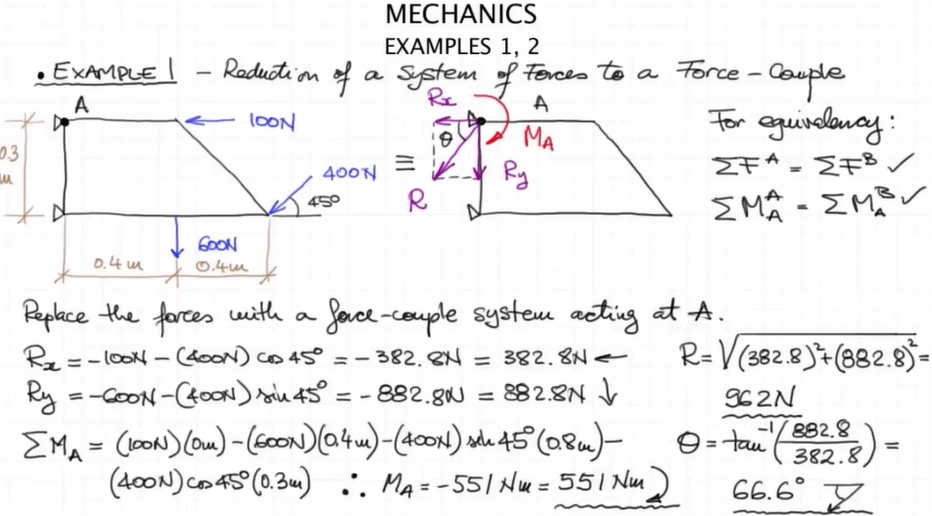 MECHANICS
EXAMPLES 1, 2
• EXAMPLE 1 – Reduction of a System of Forces to a Force-Couple
A
100N
0.3
m
400N
45°
600N
0.4m
0.4m
≡
Rx
A
θ
MA
Ry
R
For equivalency:
ΣF^A = ΣF^B ✓
ΣM_A^A = ΣM_A^B ✓
Replace the forces with a force-couple system acting at A.
Rx = -100N - (400N) cos 45° = -382.8N = 382.8N ←
Ry = -600N - (400N) sin 45° = -882.8N = 882.8N ↓
ΣMA = (100N)(0m) - (600N)(0.4m) - (400N) sin 45° (0.8m) -
(400N) cos 45° (0.3m) ∴ MA = -551 Nm = 551 Nm ⤸
R = √(382.8)²+(882.8)² =
962N
θ = tan⁻¹(882.8/382.8) =
66.6°